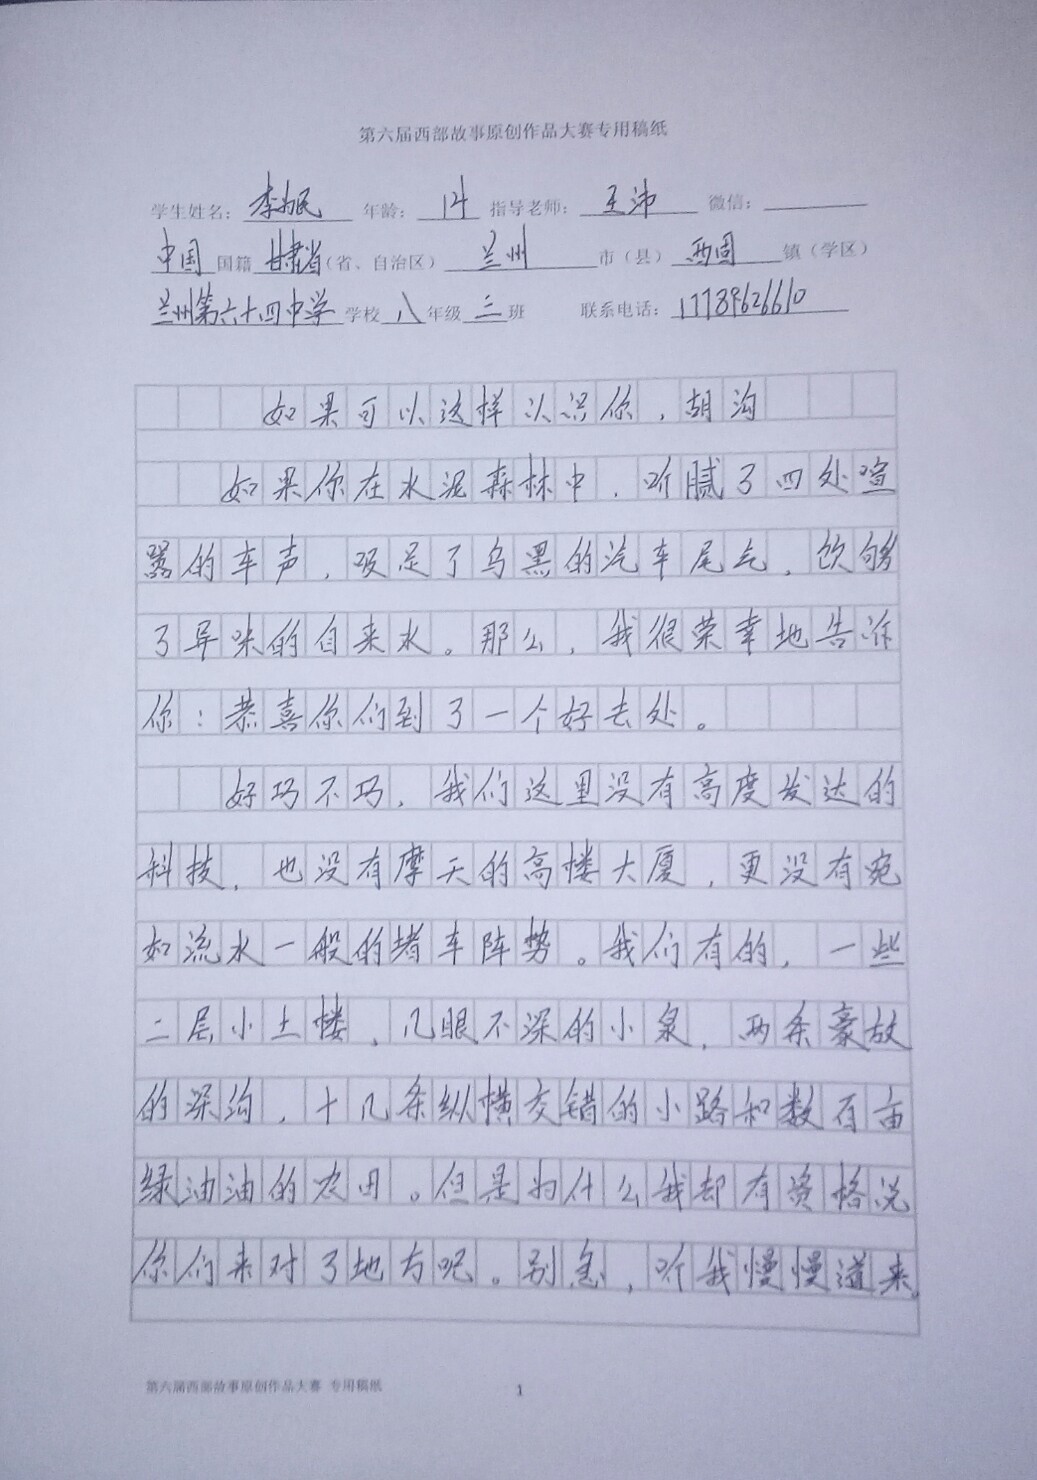 第六届西部故事原创作品大赛专用稿纸
学生姓名：李为民 年龄：14 指导老师：王沛 微信：
中国国籍 甘肃省（省、自治区） 兰州 市（县） 西固 镇（学区）
兰州第六十四中学 学校 八 年级 三 班 联系电话：17789626610
如果可以这样认识你，胡沟
如果你在水泥森林中，听腻了四处喧
嚣的车声，吸足了乌黑的汽车尾气，饮够
了异味的自来水。那么，我很荣幸地告诉
你：恭喜你们到了一个好去处。
好巧不巧，我们这里没有高度发达的
科技，也没有摩天的高楼大厦，更没有宛
如流水一般的堵车阵势。我们有的，一些
二层小土楼，几眼不深的小泉，两条豪放
的深沟，十几条纵横交错的小路和数百亩
绿油油的农田。但是为什么我却有资格说
你们来对了地方呢。别急，听我慢慢道来。
第六届西部故事原创作品大赛 专用稿纸
1